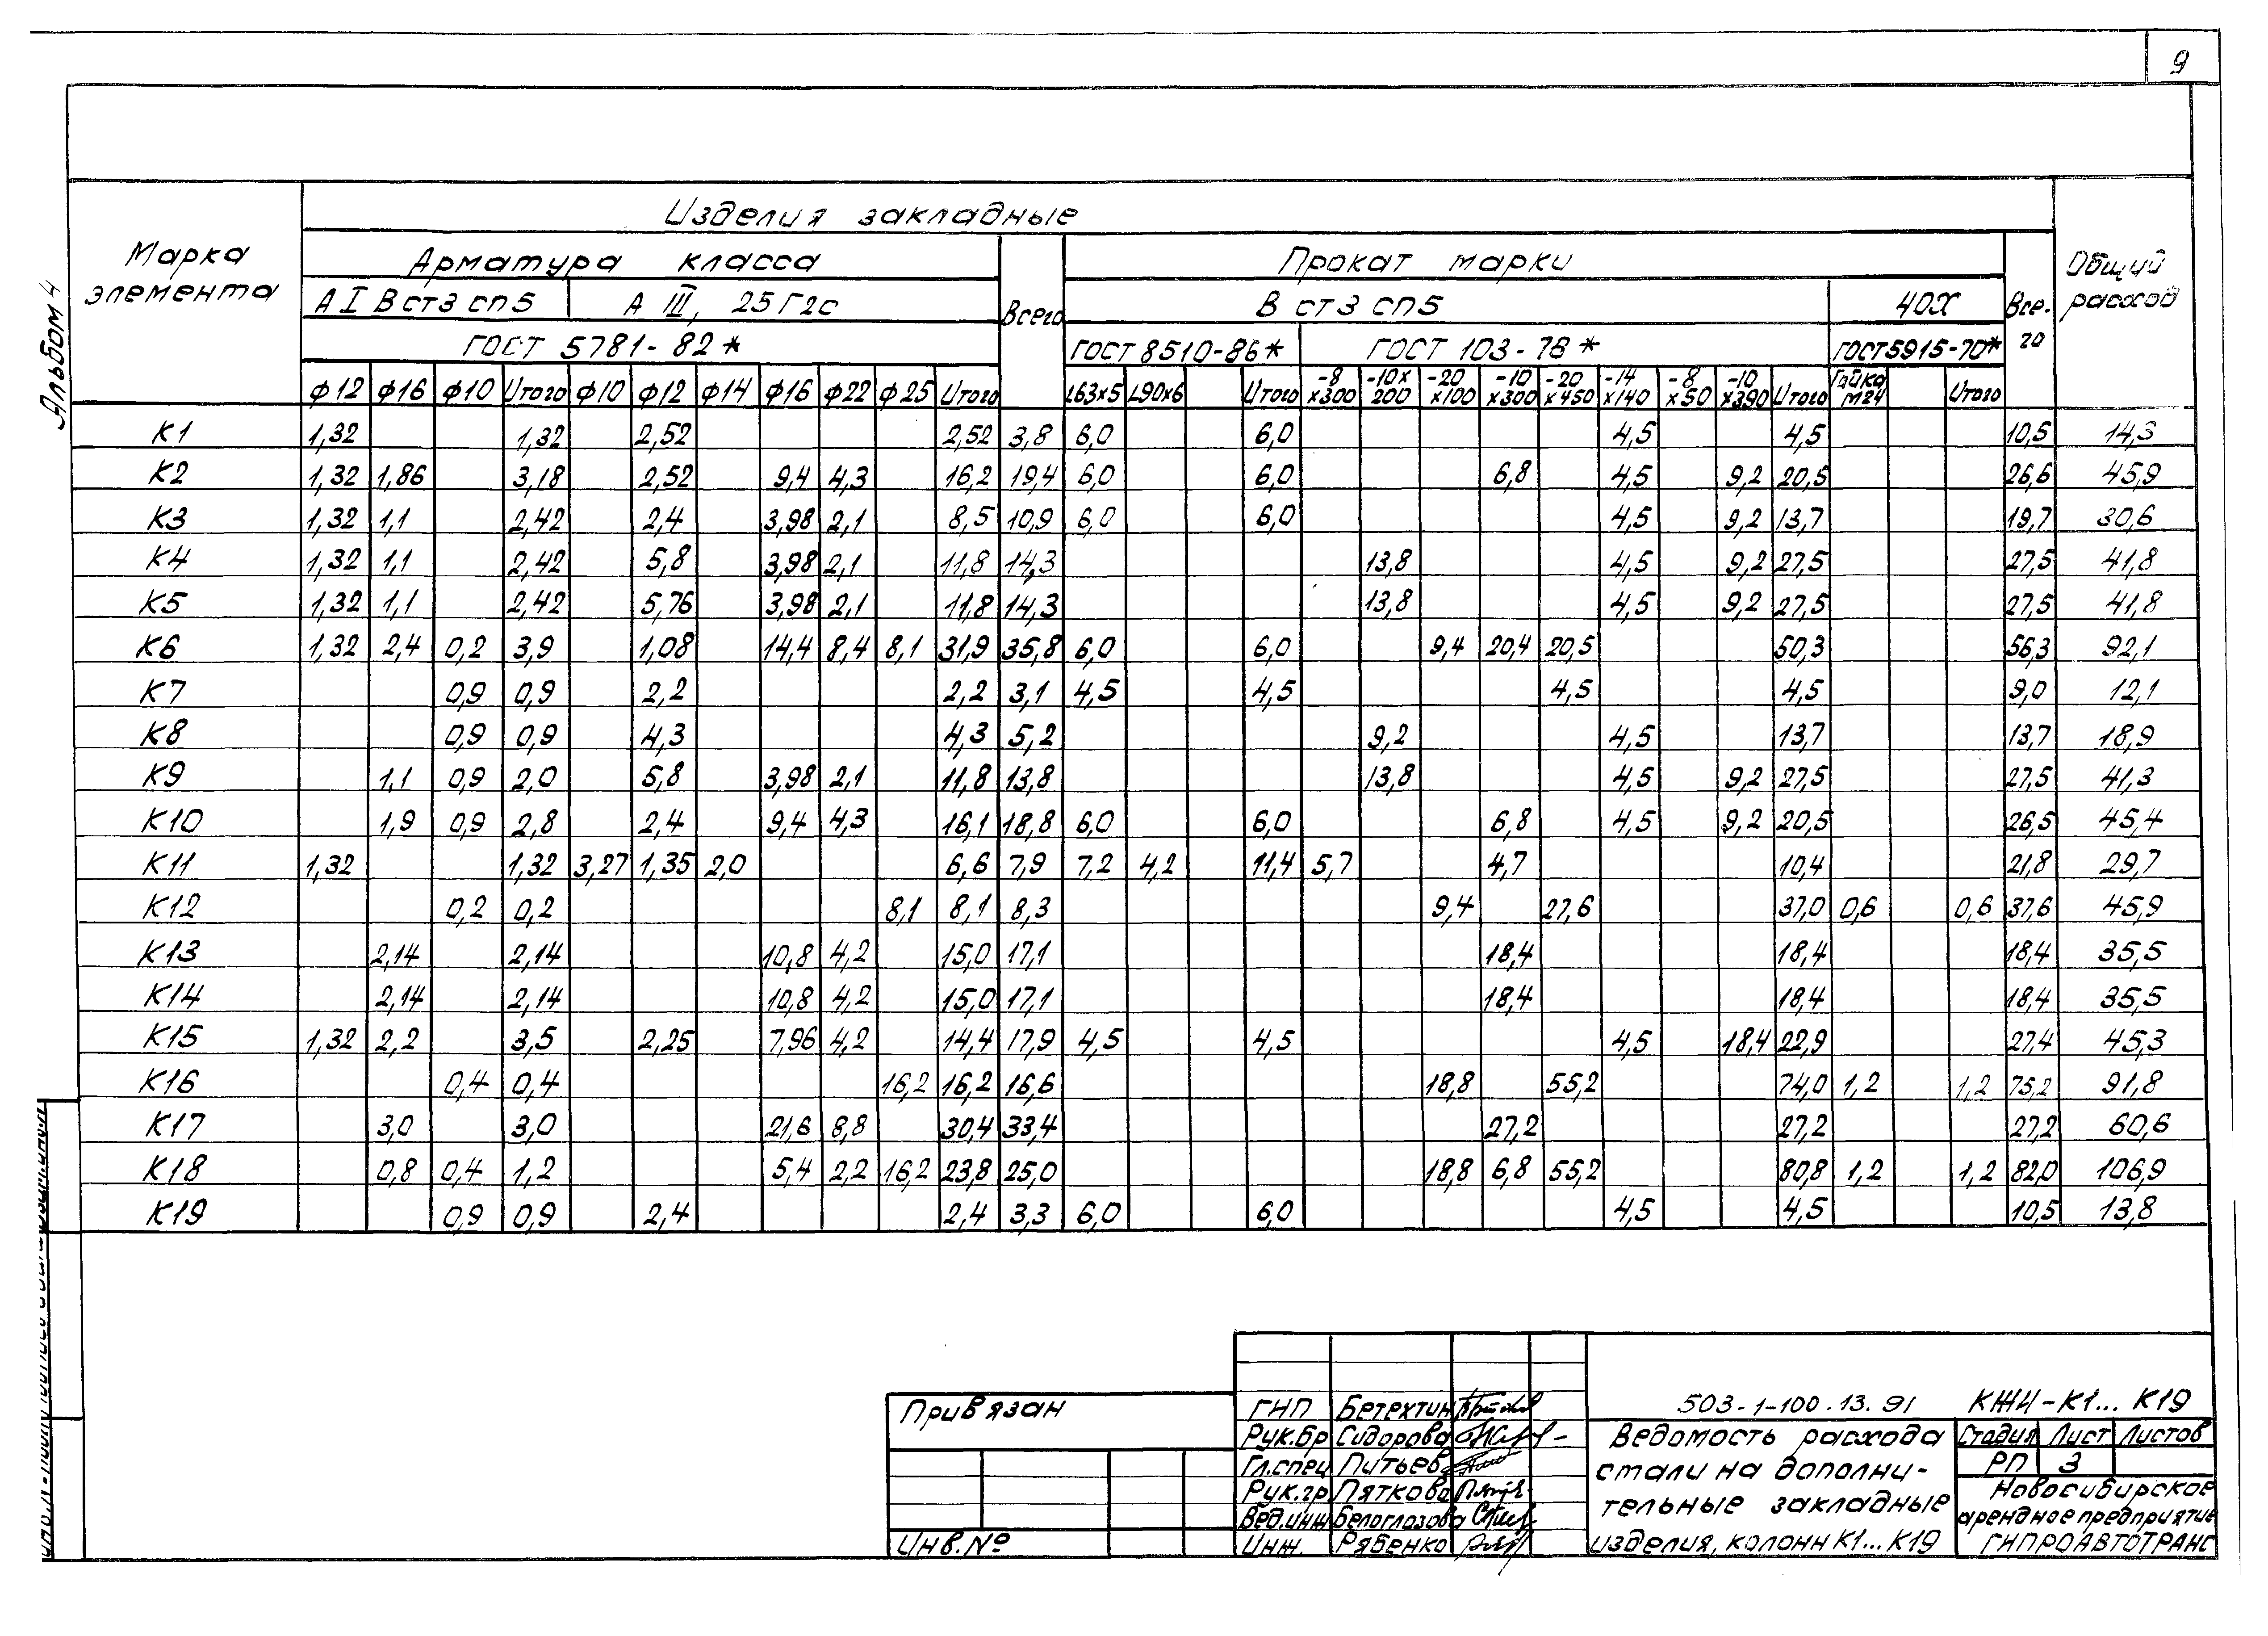 9
Альбом 4
Марка элемента
Изделия закладные
Общий расход
Арматура класса
Всего
Прокат марки
Все-го
А I В ст3 сп5 А III, 25Г2с
В ст3 сп5 40Х
ГОСТ 5781-82*
ГОСТ 8510-86* ГОСТ 103-76* ГОСТ 5915-70*
ф12 ф16 ф10 Итого ф10 ф12 ф14 ф16 ф22 ф25 Итого L63х5 L90х6 Итого -8х300 -10х200 -20х100 -10х300 -20х450 -14х140 -8х50 -10х390 Итого Гайка М24 Итого
К1 1,32 1,32 2,52 2,52 3,8 6,0 6,0 4,5 4,5 10,5 14,3
К2 1,32 1,86 3,18 2,52 9,4 4,3 16,2 19,4 6,0 6,0 6,8 4,5 9,2 20,5 26,6 45,9
К3 1,32 1,1 2,42 2,4 3,98 2,1 8,5 10,9 6,0 6,0 4,5 9,2 13,7 19,7 30,6
К4 1,32 1,1 2,42 5,8 3,98 2,1 11,8 14,3 13,8 4,5 9,2 27,5 27,5 41,8
К5 1,32 1,1 2,42 5,76 3,98 2,1 11,8 14,3 13,8 4,5 9,2 27,5 27,5 41,8
К6 1,32 2,4 0,2 3,9 1,08 14,4 8,4 8,1 31,9 35,8 6,0 6,0 9,4 20,4 20,5 50,3 56,3 92,1
К7 0,9 0,9 2,2 2,2 3,1 4,5 4,5 4,5 4,5 9,0 12,1
К8 0,9 0,9 4,3 4,3 5,2 9,2 4,5 13,7 13,7 18,9
К9 1,1 0,9 2,0 5,8 3,98 2,1 11,8 13,8 13,8 4,5 9,2 27,5 27,5 41,3
К10 1,9 0,9 2,8 2,4 9,4 4,3 16,1 18,8 6,0 6,0 6,8 4,5 9,2 20,5 26,5 45,4
К11 1,32 1,32 3,27 1,35 2,0 6,6 7,9 7,2 4,2 11,4 5,7 4,7 10,4 21,8 29,7
К12 0,2 0,2 8,1 8,1 8,3 9,4 27,6 37,0 0,6 0,6 37,6 45,9
К13 2,14 2,14 10,8 4,2 15,0 17,1 18,4 18,4 18,4 35,5
К14 2,14 2,14 10,8 4,2 15,0 17,1 18,4 18,4 18,4 35,5
К15 1,32 2,2 3,5 2,25 7,96 4,2 14,4 17,9 4,5 4,5 4,5 18,4 22,9 27,4 45,3
К16 0,4 0,4 16,2 16,2 16,6 18,8 55,2 74,0 1,2 1,2 75,2 91,8
К17 3,0 3,0 21,6 8,8 30,4 33,4 27,2 27,2 27,2 60,6
К18 0,8 0,4 1,2 5,4 2,2 16,2 23,8 25,0 18,8 6,8 55,2 80,8 1,2 1,2 82,0 106,9
К19 0,9 0,9 2,4 2,4 3,3 6,0 6,0 4,5 4,5 10,5 13,8
Привязан
Инв.№
ГИП Бетехтин
Рук.бр Сидорова
Гл.спец Питьев
Рук.гр. Пяткова
Вед.инж Белоглазова
Инж. Рябенко
503-1-100.13.91 КЖИ-К1...К19
Ведомость расхода
стали на дополни-
тельные закладные
изделия, колонн К1...К19
Стадия Лист Листов
РП 3
Новосибирское
арендное предприятие
ГИПРОАВТОТРАНС